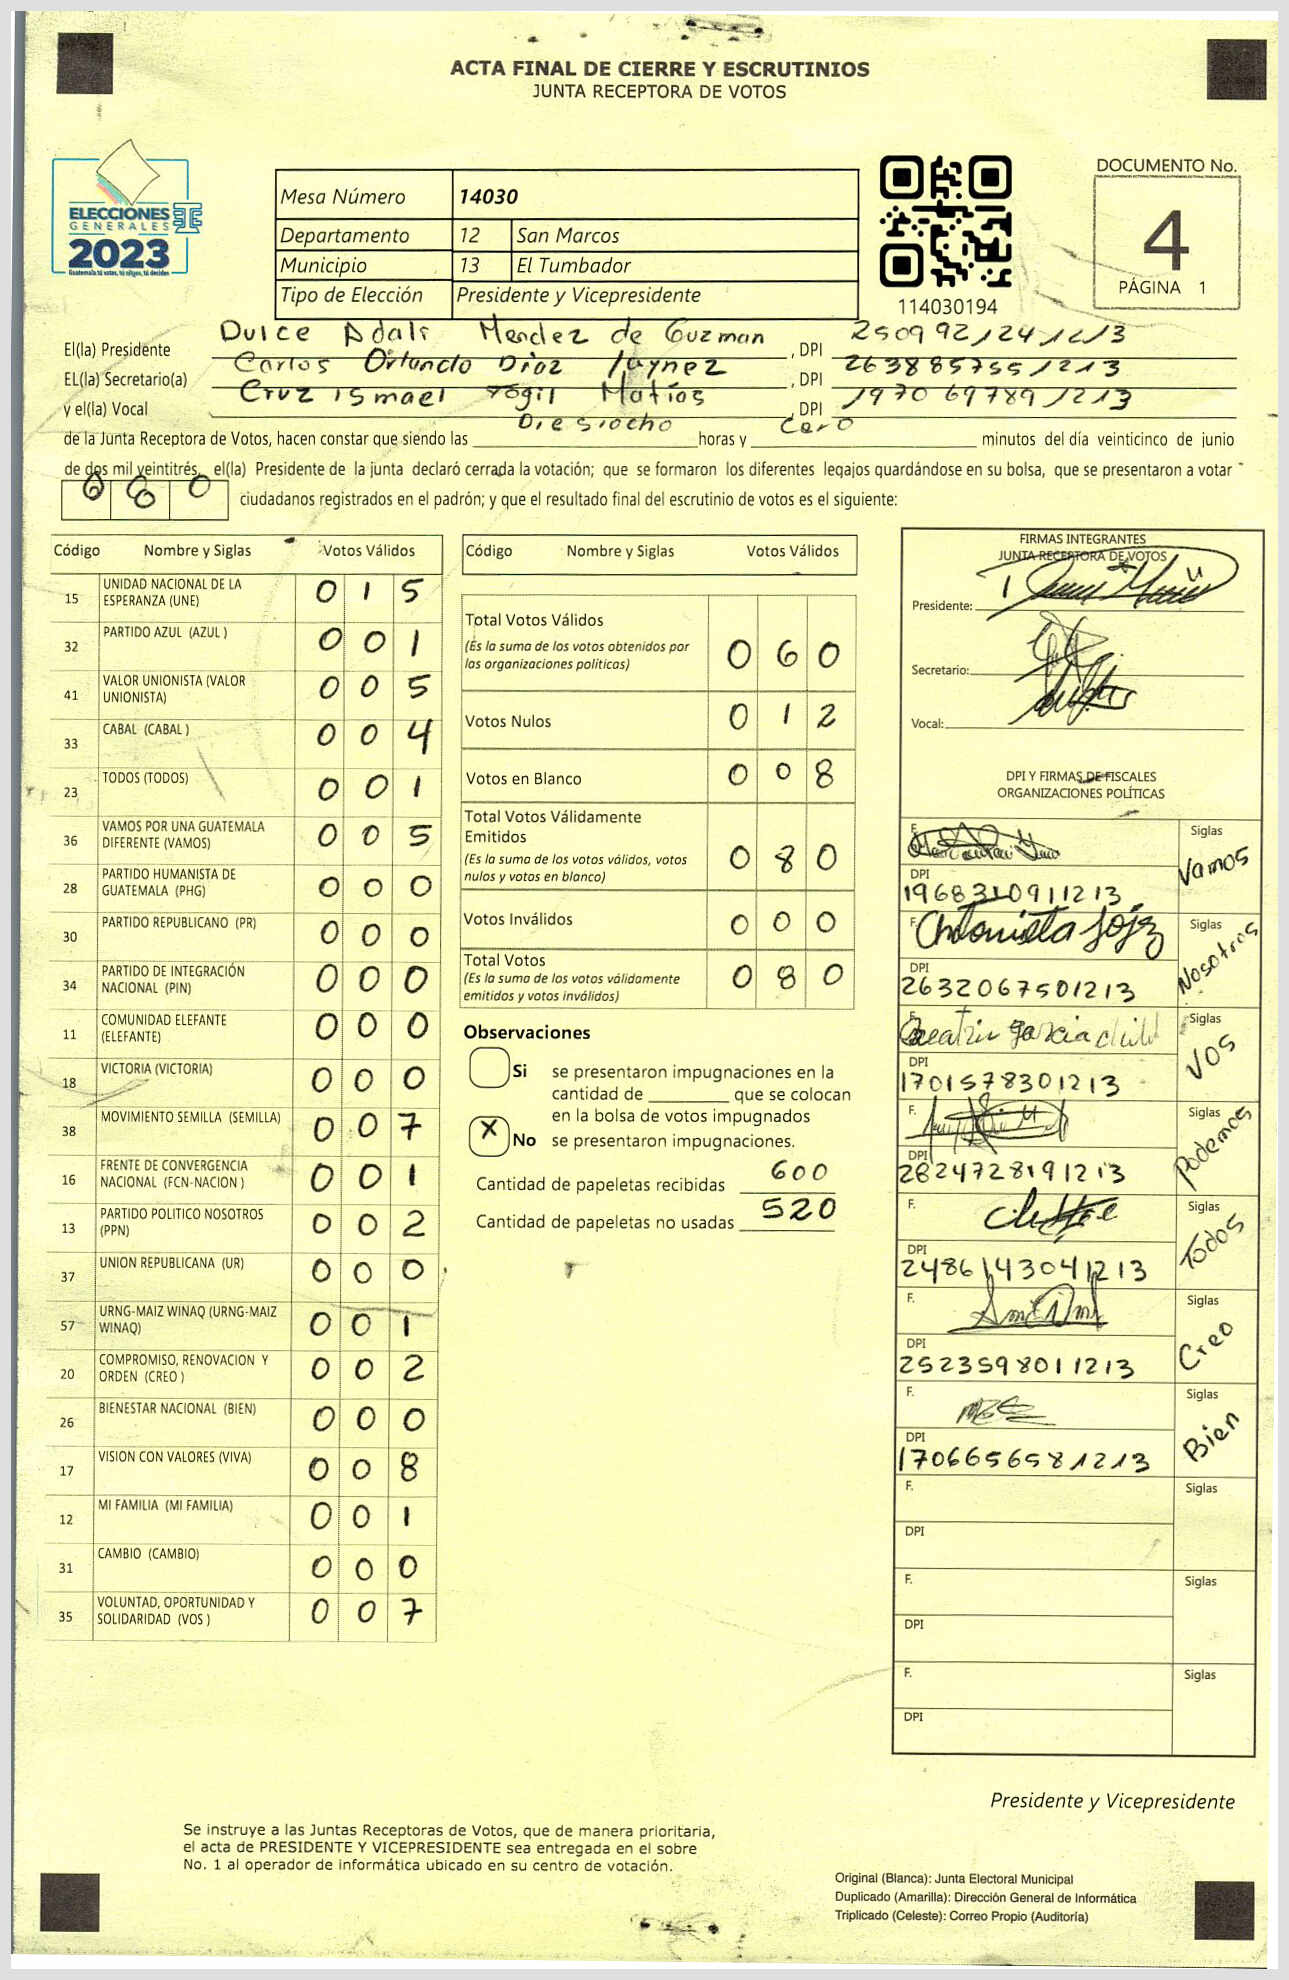 ACTA FINAL DE CIERRE Y ESCRUTINIOS
JUNTA RECEPTORA DE VOTOS
ELECCIONES
GENERALES
2023
Guatemala tú votas, tú eliges, tú decides
Mesa Número 14030
Departamento 12 San Marcos
Municipio 13 El Tumbador
Tipo de Elección Presidente y Vicepresidente
114030194
DOCUMENTO No.
4
PÁGINA 1
El(la) Presidente Dulce Adali Mendez de Guzman , DPI 2509921241213
EL(la) Secretario(a) Carlos Orlando Diaz , DPI 2638857551213
y el(la) Vocal Cruz ismael Matías , DPI 1970697891213
de la Junta Receptora de Votos, hacen constar que siendo las Diesiocho horas y Cero minutos del día veinticinco de junio
de dos mil veintitrés, el(la) Presidente de la junta declaró cerrada la votación; que se formaron los diferentes legajos quardándose en su bolsa, que se presentaron a votar
080 ciudadanos registrados en el padrón; y que el resultado final del escrutinio de votos es el siguiente:
Código Nombre y Siglas Votos Válidos
15 UNIDAD NACIONAL DE LA ESPERANZA (UNE) 0 1 5
32 PARTIDO AZUL (AZUL ) 0 0 1
41 VALOR UNIONISTA (VALOR UNIONISTA) 0 0 5
33 CABAL (CABAL ) 0 0 4
23 TODOS (TODOS) 0 0 1
36 VAMOS POR UNA GUATEMALA DIFERENTE (VAMOS) 0 0 5
28 PARTIDO HUMANISTA DE GUATEMALA (PHG) 0 0 0
30 PARTIDO REPUBLICANO (PR) 0 0 0
34 PARTIDO DE INTEGRACIÓN NACIONAL (PIN) 0 0 0
11 COMUNIDAD ELEFANTE (ELEFANTE) 0 0 0
18 VICTORIA (VICTORIA) 0 0 0
38 MOVIMIENTO SEMILLA (SEMILLA) 0 0 7
16 FRENTE DE CONVERGENCIA NACIONAL (FCN-NACION ) 0 0 1
13 PARTIDO POLITICO NOSOTROS (PPN) 0 0 2
37 UNION REPUBLICANA (UR) 0 0 0
57 URNG-MAIZ WINAQ (URNG-MAIZ WINAQ) 0 0 1
20 COMPROMISO, RENOVACION Y ORDEN (CREO ) 0 0 2
26 BIENESTAR NACIONAL (BIEN) 0 0 0
17 VISION CON VALORES (VIVA) 0 0 8
12 MI FAMILIA (MI FAMILIA) 0 0 1
31 CAMBIO (CAMBIO) 0 0 0
35 VOLUNTAD, OPORTUNIDAD Y SOLIDARIDAD (VOS ) 0 0 7
Código Nombre y Siglas Votos Válidos
Total Votos Válidos 0 6 0
(Es la suma de los votos obtenidos por
las organizaciones politicas)
Votos Nulos 0 1 2
Votos en Blanco 0 0 8
Total Votos Válidamente
Emitidos 0 8 0
(Es la suma de los votos válidos, votos
nulos y votos en blanco)
Votos Inválidos 0 0 0
Total Votos 0 8 0
(Es la suma de los votos válidamente
emitidos y votos inválidos)
Observaciones
Si se presentaron impugnaciones en la
cantidad de ________ que se colocan
en la bolsa de votos impugnados
X No se presentaron impugnaciones.
Cantidad de papeletas recibidas 600
Cantidad de papeletas no usadas 520
FIRMAS INTEGRANTES
JUNTA RECEPTORA DE VOTOS
Presidente:
Secretario:
Vocal:
DPI Y FIRMAS DE FISCALES
ORGANIZACIONES POLÍTICAS
F. Siglas Vamos
DPI 1968310911213
F. Antonieta Siglas Nosotros
DPI 2632067501213
F. Beatriz garcia Siglas VOS
DPI 1701578301213
F. Siglas Podemos
DPI 2824728191213
F. Siglas Todos
DPI 2486143041213
F. Siglas Creo
DPI 2523598011213
F. Siglas Bien
DPI 1706656581213
F. Siglas
DPI
F. Siglas
DPI
F. Siglas
DPI
Presidente y Vicepresidente
Se instruye a las Juntas Receptoras de Votos, que de manera prioritaria,
el acta de PRESIDENTE Y VICEPRESIDENTE sea entregada en el sobre
No. 1 al operador de informática ubicado en su centro de votación.
Original (Blanca): Junta Electoral Municipal
Duplicado (Amarilla): Dirección General de Informática
Triplicado (Celeste): Correo Propio (Auditoría)